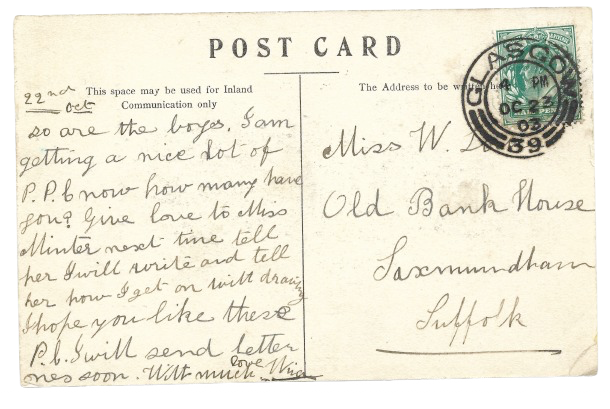 POST CARD
22nd Oct
This space may be used for Inland
Communication only
so are the boys. I am
getting a nice lot of
P.P.C now how many have
you? Give love to Miss
Minter next time tell
her I will write and tell
her how I get on with drawing
I hope you like these
P.C. I will send letter
ones soon. With much love
The Address to be written here
Miss W.
Old Bank House
Saxmundham
Suffolk
GLASGOW
4 PM
OC 22
39